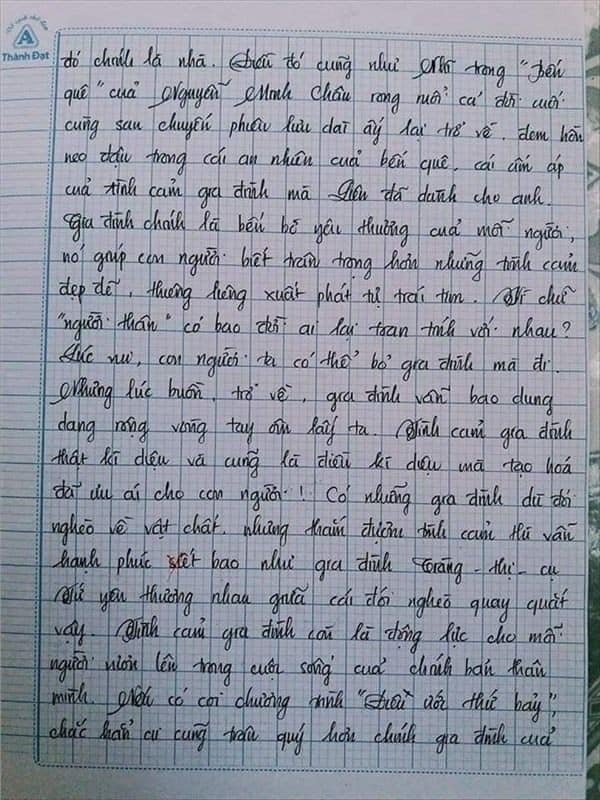 Thành Đạt
đó chính là nhà. Điều đó cũng như Nhĩ trong "Bến
quê" của Nguyễn Minh Châu rong ruổi cả đời cuối
cùng sau chuyến phiêu lưu dài ấy lại trở về, đem hồn
neo đậu trong cái an nhiên của bến quê, cái ấm áp
của tình cảm gia đình mà Liên đã dành cho anh.
Gia đình chính là bến bờ yêu thương của mỗi người,
nó giúp con người biết trân trọng hơn những tình cảm
đẹp đẽ, thương lòng xuất phát từ trái tim. Vì chữ
"người thân" có bao đời ai lại toan tính với nhau?
Lúc vui, con người ta có thể bỏ gia đình mà đi.
Nhưng lúc buồn, trở về, gia đình vẫn bao dung
dang rộng vòng tay ôm lấy ta. Tình cảm gia đình
thật kì diệu và cũng là điều kì diệu mà tạo hoá
đã ưu ái cho con người! Có những gia đình dù đói
nghèo về vật chất, nhưng thắm đượm tình cảm thì vẫn
hạnh phúc biết bao như gia đình Tràng - thị - cụ
Tứ yêu thương nhau giữa cái đói nghèo quay quắt
vậy. Tình cảm gia đình còn là động lực cho mỗi
người vươn lên trong cuộc sống của chính bản thân
mình. Nếu có coi chương trình "Điều ước thứ bảy",
chắc hẳn ai cũng trân quý hơn chính gia đình của